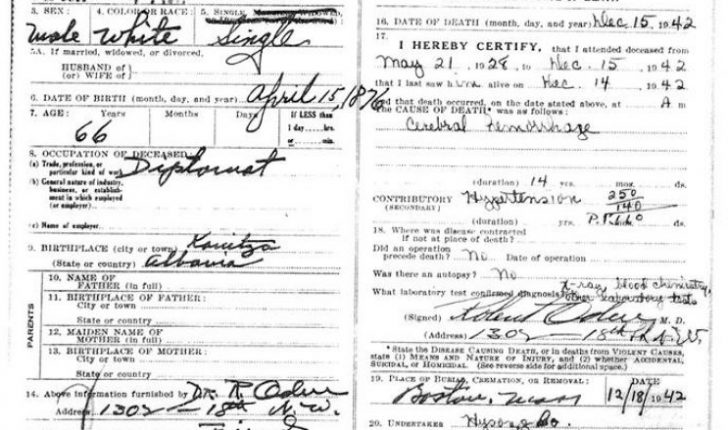 3. SEX: 4. COLOR OR RACE: 5. SINGLE,
Male White Single
5A. If married, widowed, or divorced.
HUSBAND of
(or) WIFE of
6. DATE OF BIRTH (month, day, and year) April 15, 1876
7. AGE: Years Months Days If LESS than
1 day, hrs.
66
or min.
8. OCCUPATION OF DECEASED:
(a) Trade, profession, or
particular kind of work Diplomat
(b) General nature of industry,
business, or establish-
ment in which employed
(or employer)
(c) Name of employer
9. BIRTHPLACE (city or town)
(State or country) Albania
PARENTS
10. NAME OF
FATHER (in full)
11. BIRTHPLACE OF FATHER:
City or town
State or country
12. MAIDEN NAME OF
MOTHER (in full)
13. BIRTHPLACE OF MOTHER:
City or town
State or country
14. Above information furnished by Dr. R.
Address 1302 — 18th N.W.
16. DATE OF DEATH (month, day, and year) Dec. 15, 1942
17.
I HEREBY CERTIFY, that I attended deceased from
May 21 1928 to Dec. 15 1942
that I last saw him alive on Dec. 14 1942
and that death occurred, on the date stated above, at A m
The CAUSE OF DEATH was as follows:
Cerebral Hemorrhage
(duration) 14 yrs. mos. ds.
CONTRIBUTORY Hypertension 250
(SECONDARY) 140
(duration) yrs. ds.
18. Where was disease contracted
if not at place of death?
Did an operation
precede death? No Date of operation
Was there an autopsy? No
X-ray, blood chemistry,
What laboratory test confirmed diagnosis? other laboratory tests
(Signed) M. D.
(Address) 1302 — 18th St. N.W.
*State the DISEASE CAUSING DEATH, or in deaths from VIOLENT CAUSES,
state (1) MEANS AND NATURE OF INJURY, and (2) whether ACCIDENTAL,
SUICIDAL, OR HOMICIDAL. (See reverse side for additional space.)
19. PLACE OF BURIAL, CREMATION, OR REMOVAL: DATE
Boston, Mass 12/18/1942
20. UNDERTAKER Hysong Co.